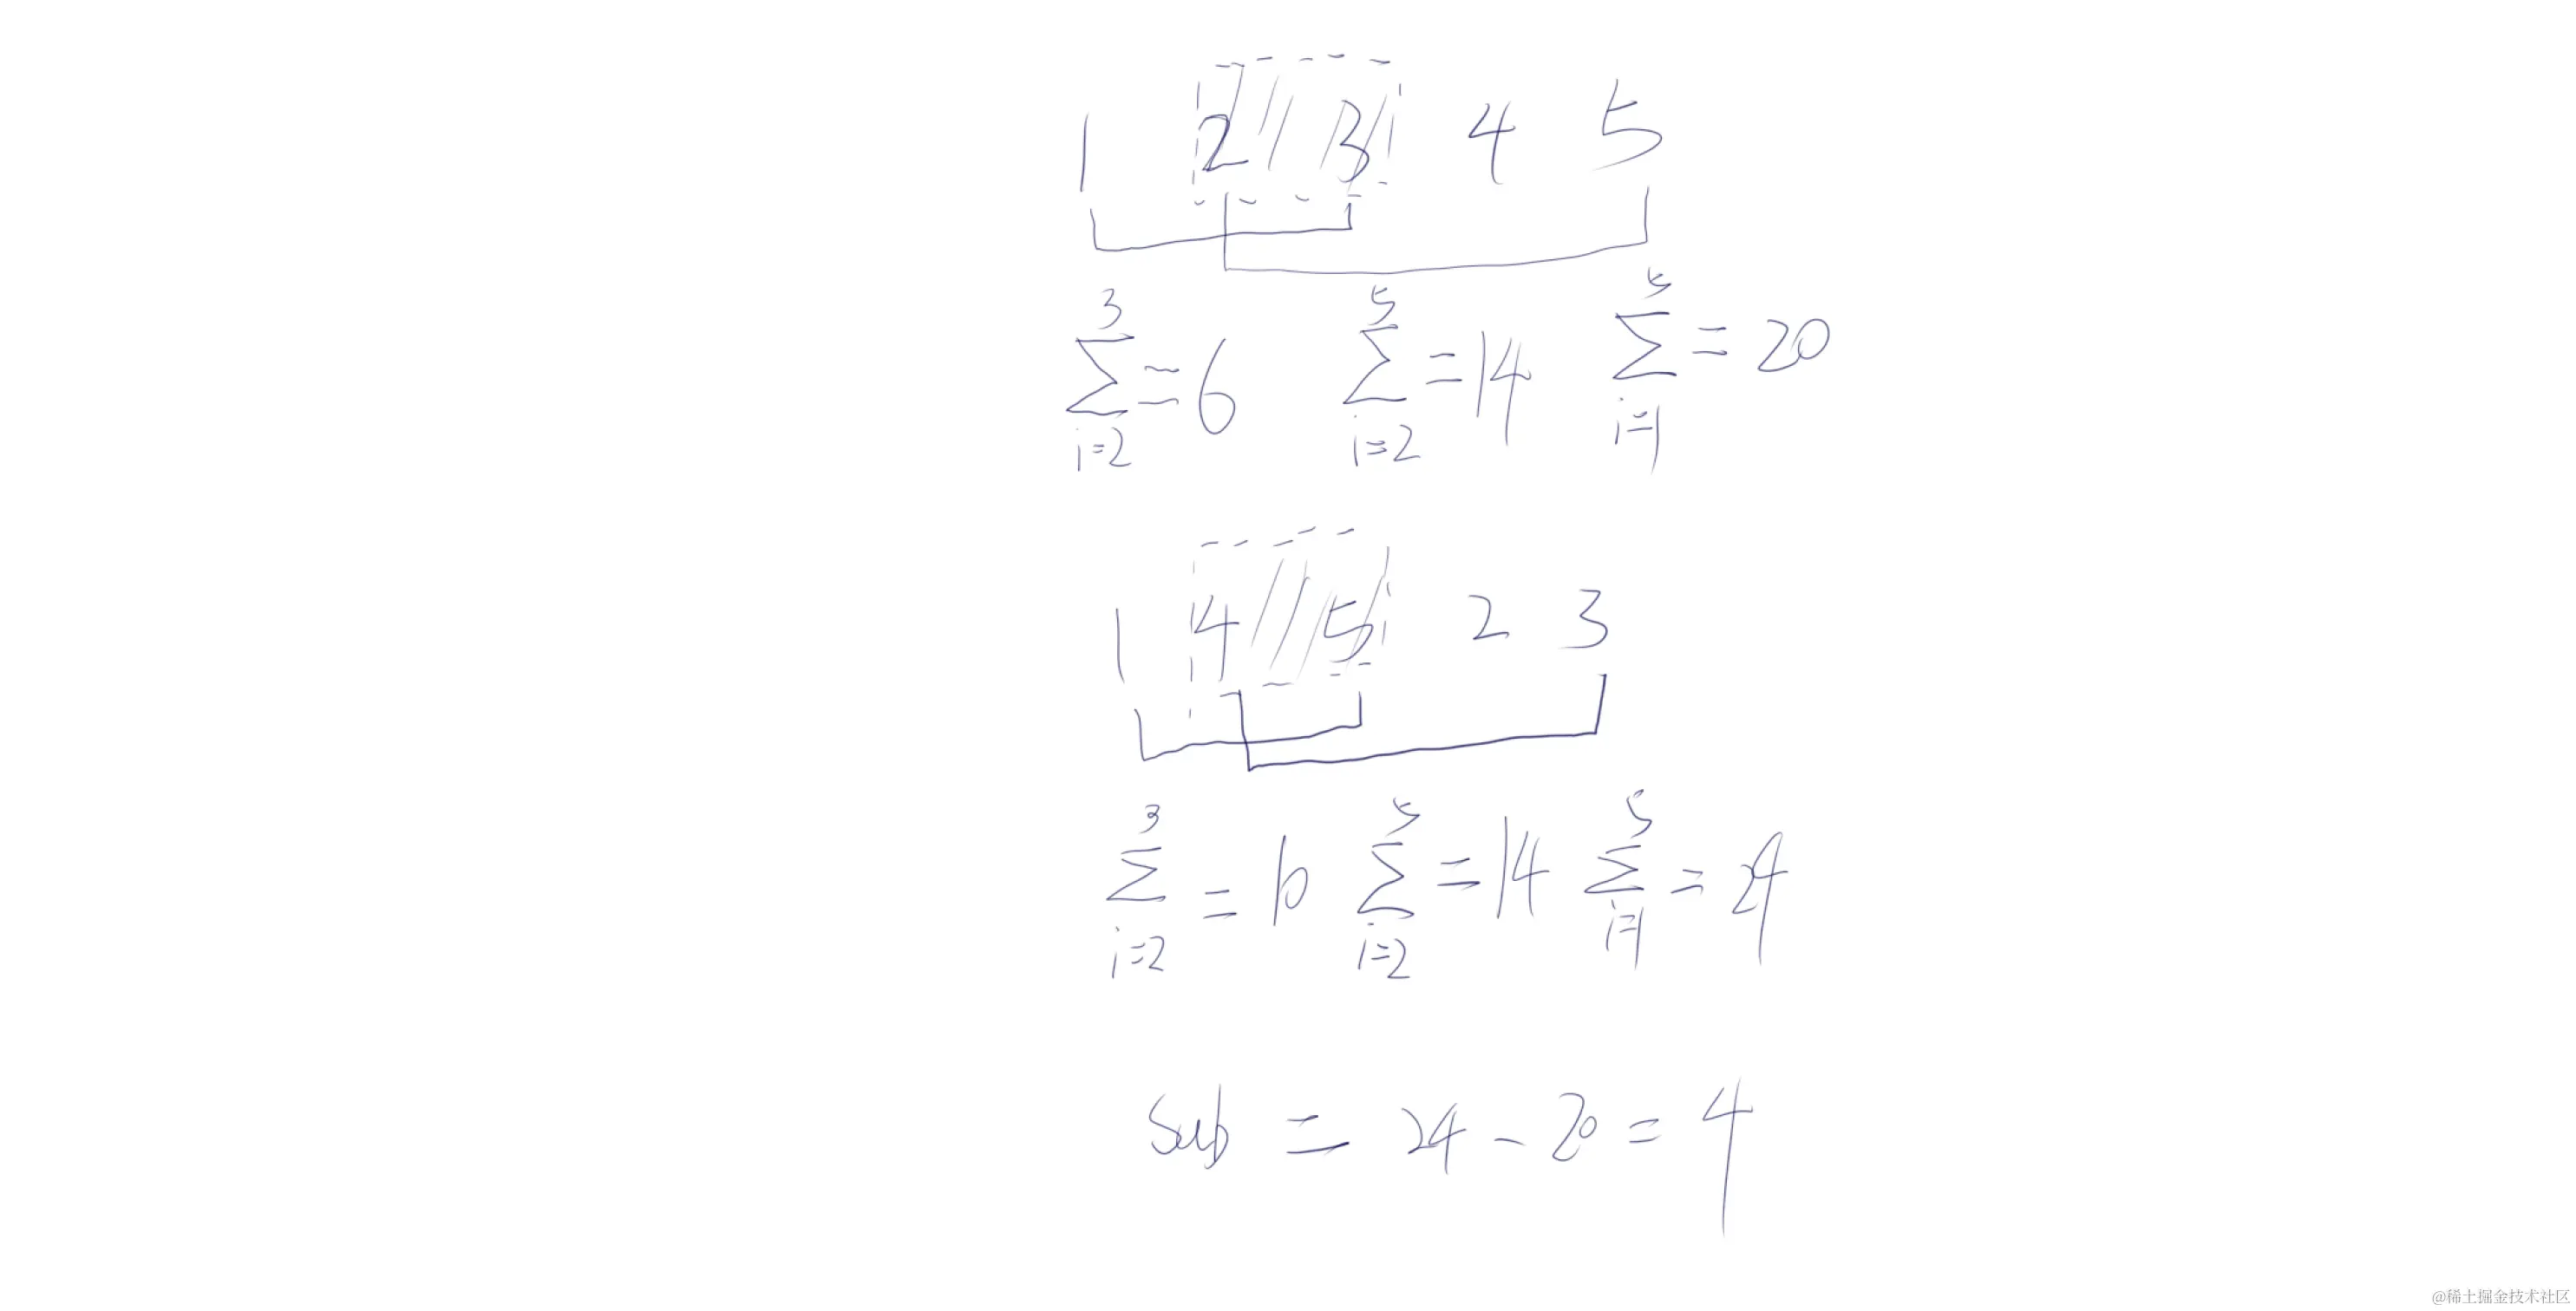 1 2 3 4 5
3 5 5
∑ = 6 ∑ = 14 ∑ = 20
i=2 i=2 i=1
1 4 5 2 3
3 5 5
∑ = 10 ∑ = 14 ∑ = 24
i=2 i=2 i=1
Sub = 24 - 20 = 4
@稀土掘金技术社区